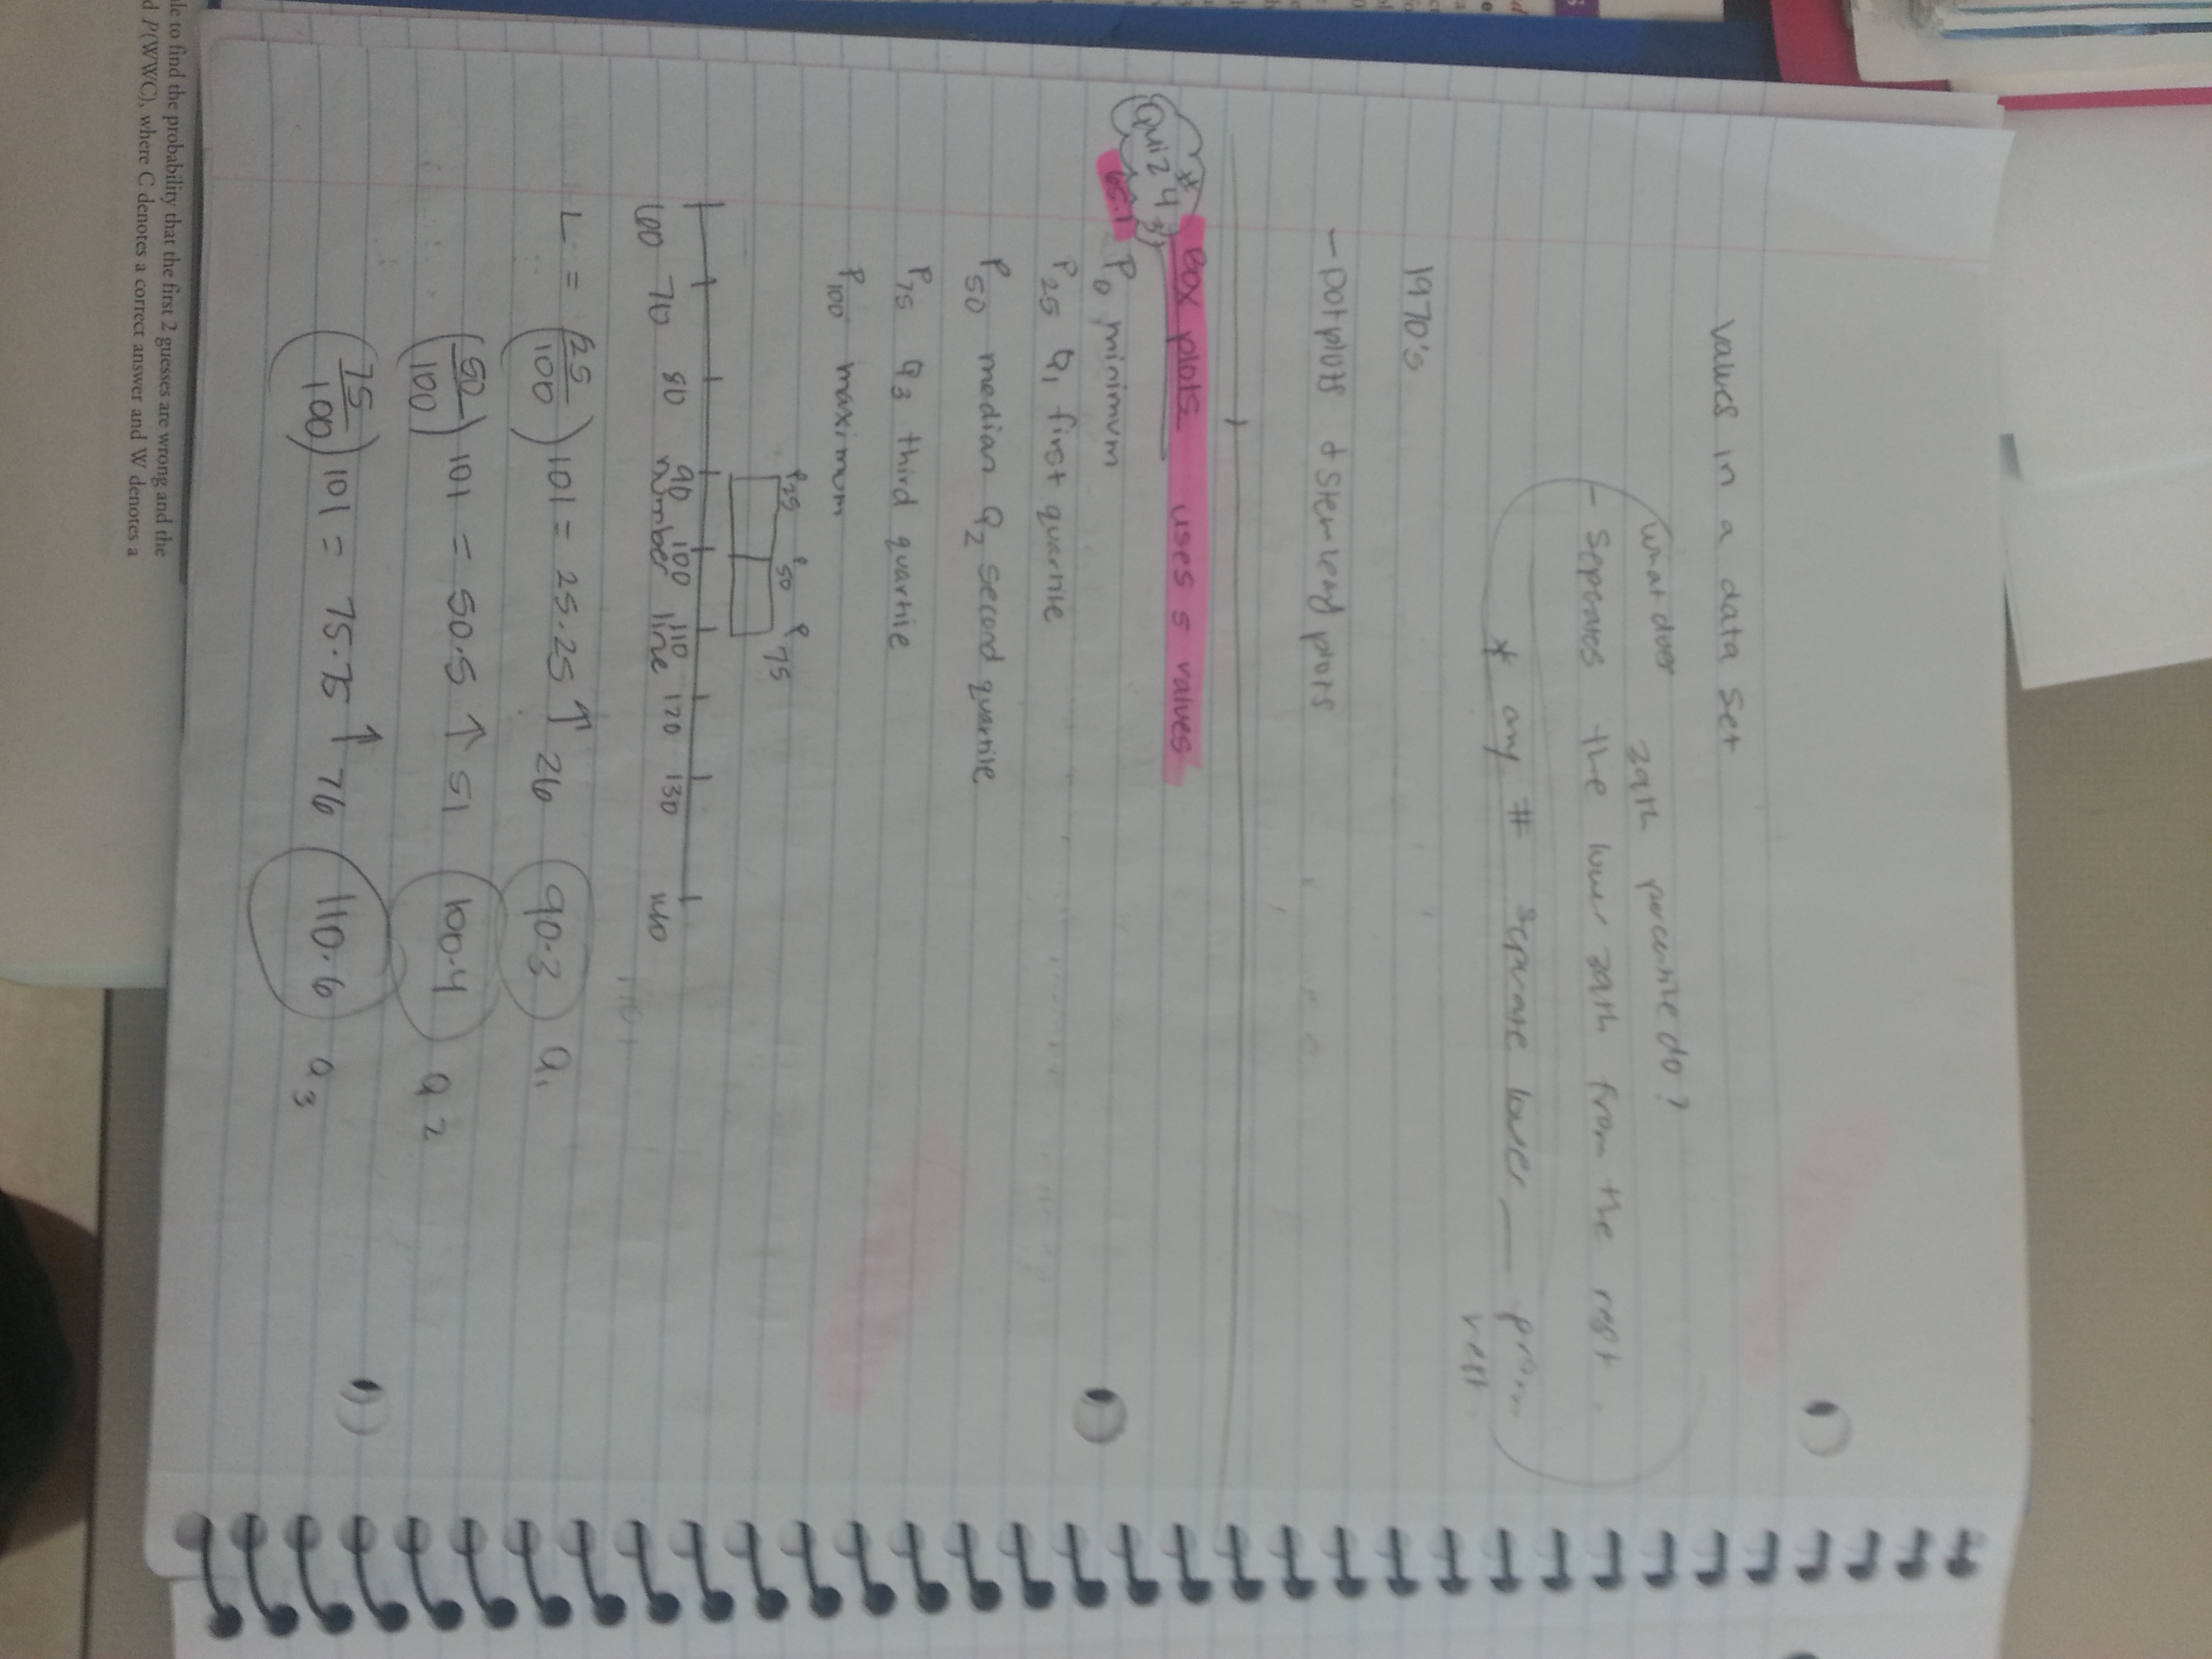 values in a data set
what does 29th percentile do?
- seperates the lower 29th from the rest.
* any # separate lower ___ from
rest.
1970's
- Dotplots & stem leaf plots
* Box plots uses 5 values
Quiz 4
P0 minimum
P25 Q1 first quartile
P50 median Q2 second quartile
P75 Q3 third quartile
P100 maximum
P25 P50 P75
60 70 80 90 100 110 120 130 140
number line
L = (25/100) 101 = 25.25 ↑ 26 90.3 Q1
(50/100) 101 = 50.5 ↑ 51 100.4 Q2
(75/100) 101 = 75.75 ↑ 76 110.6 Q3
to find the probability that the first 2 guesses are wrong and the
P(WWC), where C denotes a correct answer and W denotes a